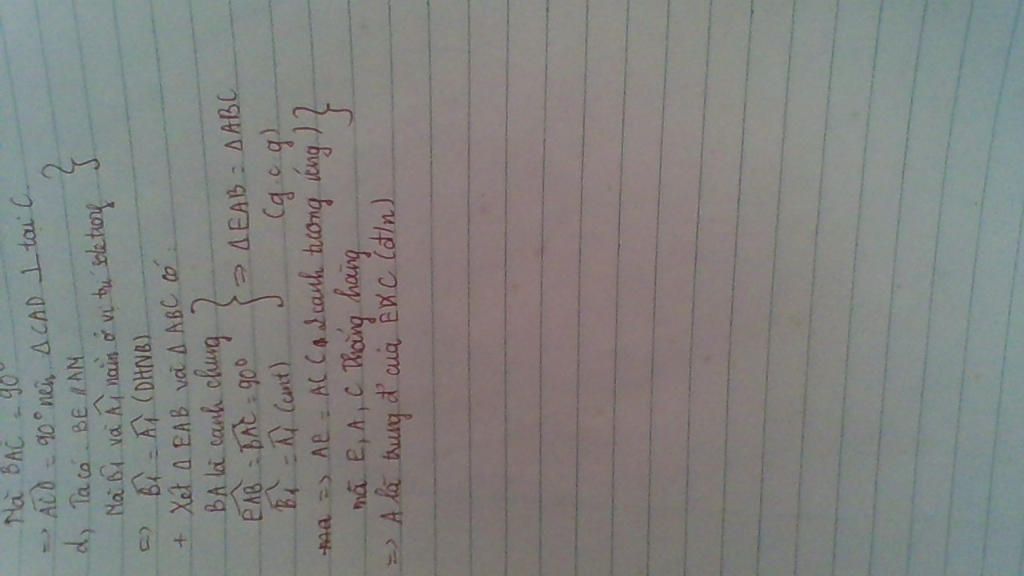 Mà BAC = 90°
=> ACD = 90° nên ΔCAD ⊥ tại C
d, Ta có BE // AM }
Mà B₁ và A₁ nằm ở vị trí trong }
=> B₁ = A₁ (DHNB)
+ Xét Δ EAB và Δ ABC có:
BA là cạnh chung }
EAB = BAC = 90° } => Δ EAB = Δ ABC
B₁ = A₁ (cmt) } (g c g)
=> AE = AC (2 cạnh tương ứng) }
mà E, A, C thẳng hàng }
=> A là trung đ' của EC (đ/n)